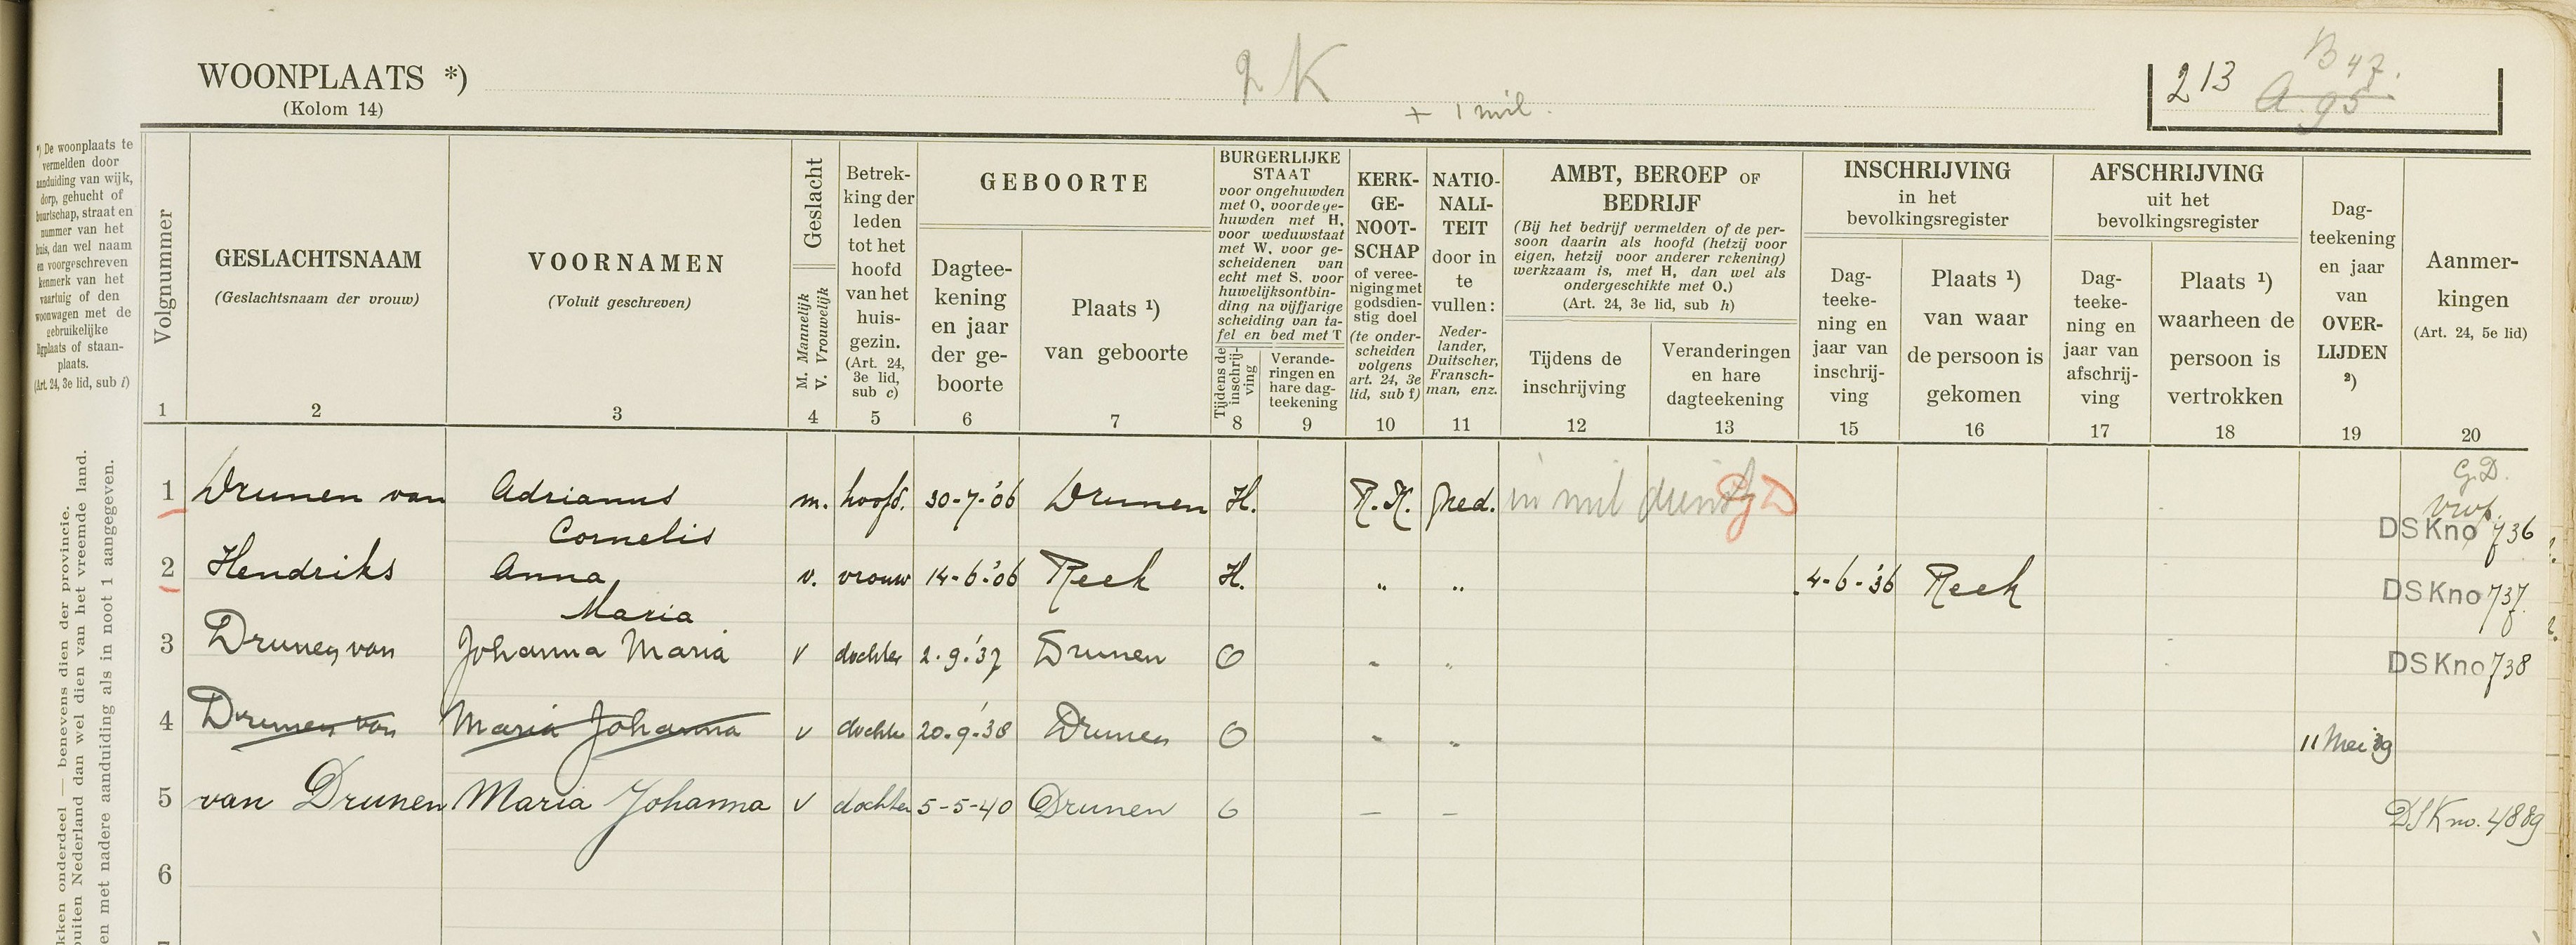 WOONPLAATS *)
(Kolom 14)
2 K
+ 1 mil.
213
B 47.
A 95
*) De woonplaats te
vermelden door
aanduiding van wijk,
dorp, gehucht of
buurtschap, straat en
nummer van het
huis, dan wel naam
en voorgeschreven
kenmerk van het
vaartuig of den
woonwagen met de
gebruikelijke
ligplaats of staan-
plaats.
(Art. 24, 3e lid, sub i)
Volgnummer
1
GESLACHTSNAAM
(Geslachtsnaam der vrouw)
2
VOORNAMEN
(Voluit geschreven)
3
Geslacht
M. Mannelijk
V. Vrouwelijk
4
Betrek-
king der
leden
tot het
hoofd
van het
huis-
gezin.
(Art. 24,
3e lid,
sub c)
5
GEBOORTE
Dagtee-
kening
en jaar
der ge-
boorte
6
Plaats ¹)
van geboorte
7
BURGERLIJKE
STAAT
voor ongehuwden
met O, voor de ge-
huwden met H,
voor weduwstaat
met W. voor ge-
scheidenen van
echt met S. voor
huwelijksontbin-
ding na vijfjarige
scheiding van ta-
fel en bed met T
Tijdens de
inschrij-
ving
8
Verande-
ringen en
hare dag-
teekening
9
KERK-
GE-
NOOT-
SCHAP
of veree-
niging met
godsdien-
stig doel
(te onder-
scheiden
volgens
art. 24, 3e
lid, sub f)
10
NATIO-
NALI-
TEIT
door in
te
vullen:
Neder-
lander,
Duitscher,
Fransch-
man, enz.
11
AMBT, BEROEP OF
BEDRIJF
(Bij het bedrijf vermelden of de per-
soon daarin als hoofd (hetzij voor
eigen, hetzij voor anderer rekening)
werkzaam is, met H, dan wel als
ondergeschikte met O.)
(Art. 24, 3e lid, sub h)
Tijdens de
inschrijving
12
Veranderingen
en hare
dagteekening
13
INSCHRIJVING
in het
bevolkingsregister
Dag-
teeke-
ning en
jaar van
inschrij-
ving
15
Plaats ¹)
van waar
de persoon is
gekomen
16
AFSCHRIJVING
uit het
bevolkingsregister
Dag-
teeke-
ning en
jaar van
afschrij-
ving
17
Plaats ¹)
waarheen de
persoon is
vertrokken
18
Dag-
teekening
en jaar
van
OVER-
LIJDEN
²)
19
Aanmer-
kingen
(Art. 24, 5e lid)
20
1 Drunen van Adrianus Cornelis m. hoofd. 30-7-'06 Drunen H. R.K. Ned. in mil dienst GD G.D. DSKno 736
2 Hendriks Anna Maria v. vrouw 14-6-'06 Reek H. " " 4-6-'36 Reek DSKno 737.
3 Drunen van Johanna Maria v dochter 2.9.'37 Drunen O " " DSKno 738
4 Drunen van Maria Johanna v dochter 20.9.'38 Drunen O " " 11 Mei 39
5 van Drunen Maria Johanna v dochter 5-5-40 Drunen O — — DSKno. 4889
6
kken onderdeel — benevens dien der provincie.
buiten Nederland dan wel dien van het vreemde land.
en met nadere aanduiding als in noot 1 aangegeven.